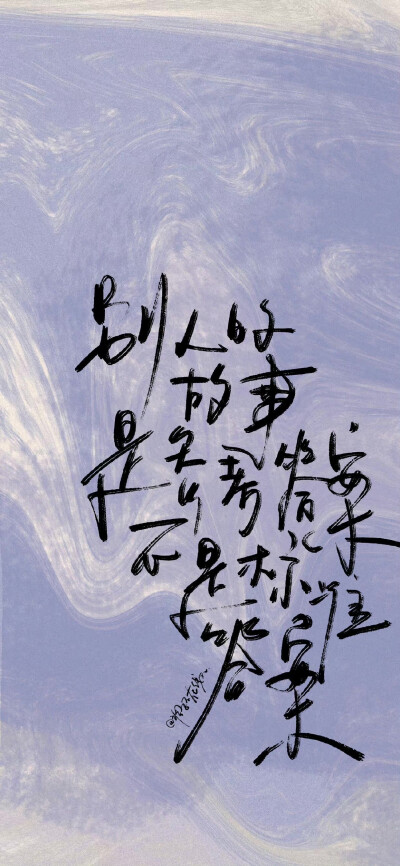 别人的
故事
是参考答案
不是标准
答案